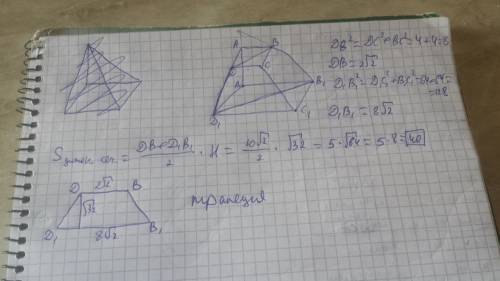 DB² = DC² + BC² = 4+4=8
DB = 2√2
D₁B₁² = D₁C₁² + B₁C₁² = 64+64=
=128
D₁B₁ = 8√2
A B
D C
A B₁
D₁ C₁
= DB+D₁B₁/2 · H = 10√2/2 · √32 = 5·√64 = 5·8 = 40
2√2
D B
√32
D₁ 8√2 B₁
трапеция